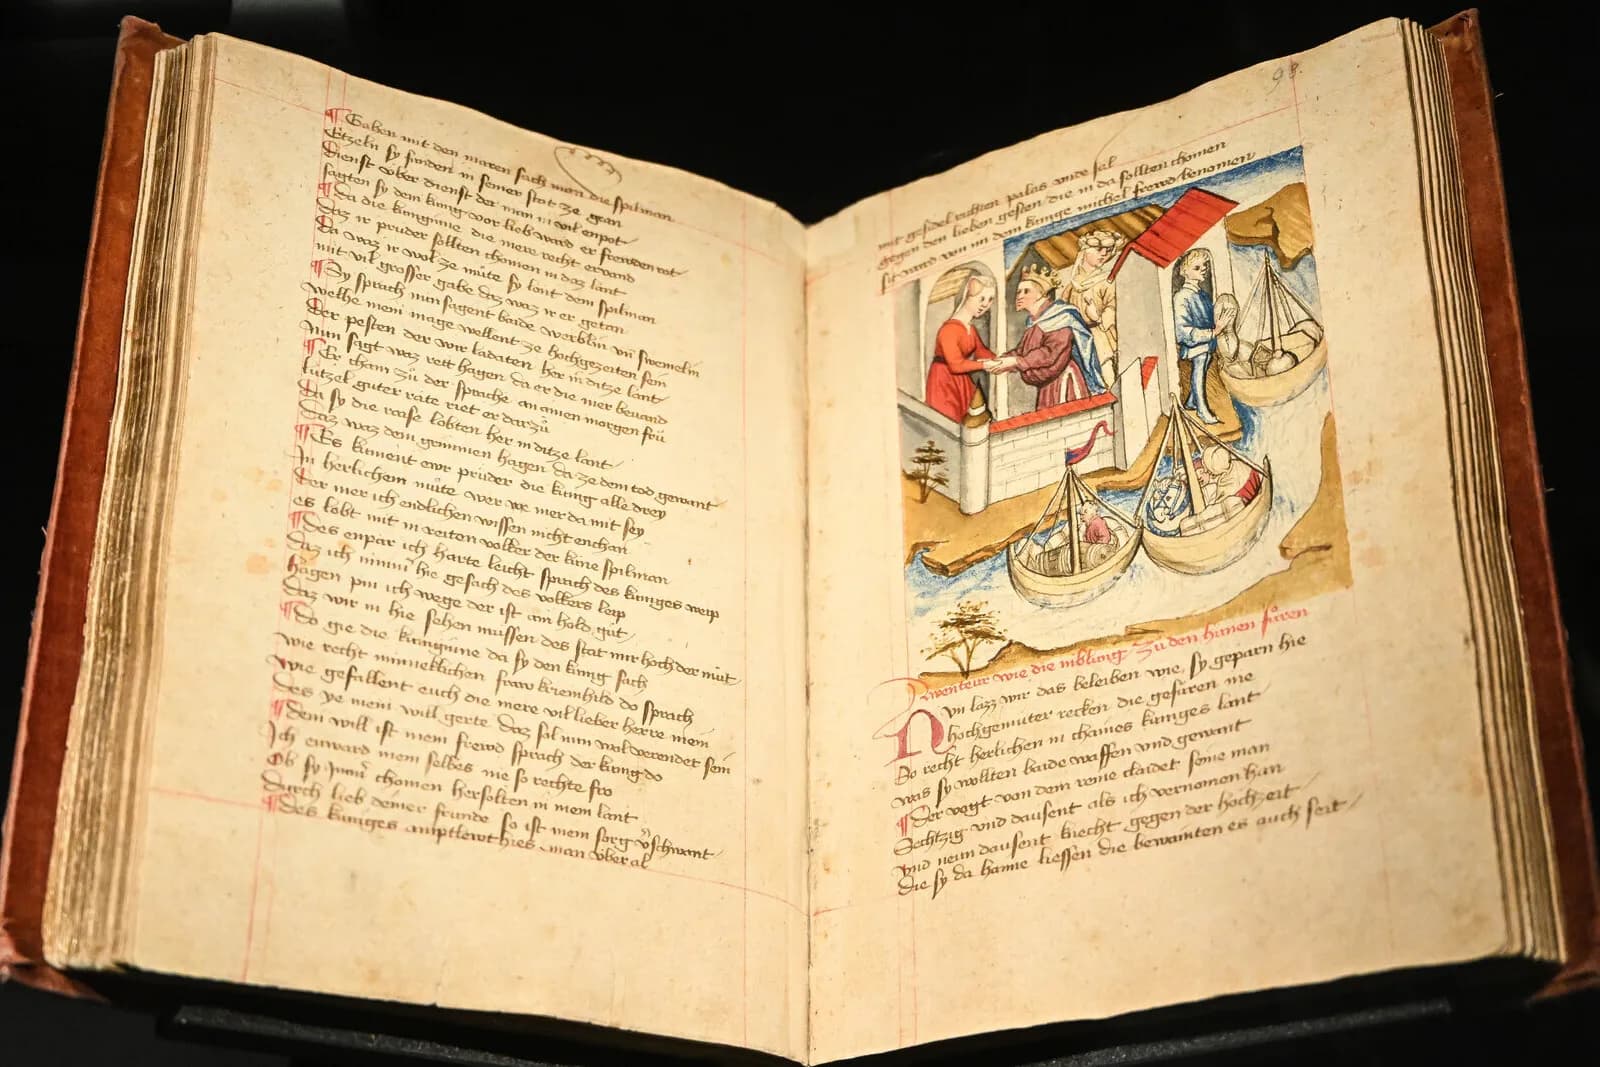 Gahen mit den maren sach man die spilman
Etzeln sy funden in seiner stat ze gran
Dienst über dienst der man in vil enpot
sagten sy dem künig vor lieb ward er frewden rot
Da die küngine die mere recht ervand
daz ir prüder sollten chomen in daz lant
Da waz ir wol ze müte sy lont dem spilman
mit vil grosser gabe daz waz ir er getan
Sy sprach nun sagent baide werblin vn swemelin
welhe mein mage wellent ze hochgezeiten sein
Der pesten der wir ladaten her in ditze lant
Nun sagt waz rett hagen da er die mer bevand
Er cham zů der sprache an ainen morgen frü
lützel guter räte riet er darzů
Da sy die raise lobten her in ditze lant
daz waz dem grimmen hagen da ze dem tod gewant
Es kument ewr prüder die künig alle drey
In herlichem müte wer we mer da mit sey
Der mer ich endlichen wissen nicht enchan
es lobt mit in reiten volker der küne spilman
Des enpär ich harte leicht sprach des küniges weip
daz ich nimm hie gesäch des volkers leip
hagen pin ich wege der ist ain held gůt
daz wir in hie sehen müssen des stat mir hoch der müt
Do gie die küngüne da sy den künig sach
wie recht minneklichen fraw kriemhild do sprach
wie gefallent euch die mere vil lieber herre mein
des ye mein will gerte daz sol nun wol verendet sein
dein will ist mein frewd sprach der küng do
Ich enward meins selbes nie so rechte fro
Ob sy chomen hersolten in mein lant
durch lieb deiner fründe so ist mein sorg v̊schwant
des küniges amptlewt hies man über al
98
mit gesidel richten palas vnde sal
gegen den lieben gesten die in da sollten chomen
sit ward von im dem künge michel frewd benomen
Awenteur wie die niblung zu den hünen füren
Nvn lazz wir das beleiben wie sy geparn hie
hochgemuter recken die gefüren nie
So recht herlichen in chaines küniges lant
was sy wollten baide waffen und gewant
Der vogt von dem reine claidet seine man
Sechtzig vnd dausent als ich vernomen han
vnd neun dausent knecht gegen der hochzeit
die sy da haime liessen die bewainten es auch seit